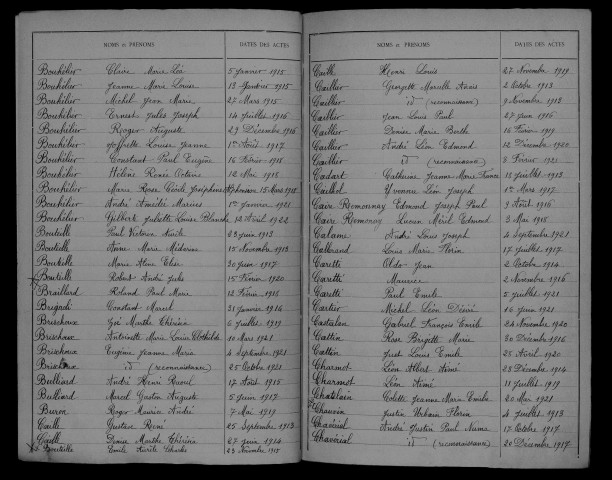 NOMS et PRÉNOMS DATES DES ACTES
Bouhélier Claire Marie Léa 5 Janvier 1915
Bouhélier Jeanne Marie Louise 13 1915
Bouhélier Michel Jean Marie 27 Mars 1915
Bouhélier Ernest Jules Joseph 14 Juillet 1916
Bouhélier Roger Auguste 29 Décembre 1916
Bouhélier Louise Jeanne 1er Août 1917
Bouhélier Constant Paul Eugène 16 Février 1918
Bouhélier Hélène Renée 12 Mai 1918
Bouhélier Marie Rose Cécile Joséphine 15 Mars 1918
Bouhélier André Amédée Marius 1er Janvier 1921
Bouhélier Gilbert Juliette Louise Blanche 12 Avril 1922
Bouteille Paul 23 Juin 1913
Bouteille Anne Marie 15 Novembre 1913
Bouteille Marie Aline Elise 30 Juin 1917
Bouteille Robert André Jules 15 Février 1920
Braillard Roland Paul Marie 12 Février 1918
Brigadi Constant Marcel 31 Janvier 1916
Brischoux Marthe Thérèse 6 Juillet 1919
Brischoux Antoinette Marie Louise Clothilde 10 Mars 1921
Brischoux Eugène Jeanne Marie 4 Septembre 1921
Brischoux d° (reconnaissance) 25 Octobre 1921
Bulliard André Henri Raoul 17 Août 1915
Bulliard Marcel Gaston Auguste 5 Juin 1917
Buren Roger Maurice André 7 Mai 1919
Caille Gustave René 25 Septembre 1913
Caille Denise Marthe Thérèse 27 Juin 1914
Bouteille Emile Charles 23 Novembre 1915
NOMS et PRÉNOMS DATES DES ACTES
Caille Henri Louis 27 Novembre 1919
Caillier Georgette Marcelle 2 Octobre 1913
Caillier d° (reconnaissance) 9 Novembre 1913
Caillier Jean Louis Paul 27 Juin 1916
Caillier Denise Marie Berthe 16 Février 1919
Caillier André Léon Edmond 12 Décembre 1920
Caillier d° (reconnaissance) 8 Février 1921
Cadart Catherine Jeanne Marie France 12 Juillet 1913
Caillod Yvonne Léa Joseph 1er Mars 1917
Caire Remonnay Edmond Joseph Paul 9 Août 1916
Caire Remonnay Lucien Edmond 3 Mai 1918
Calame André Louis Joseph 4 Septembre 1921
Louis Marie Florin 17 Juillet 1917
Caretti Aldo Jean 2 Octobre 1914
Caretti Maurice 2 Novembre 1916
Caretti Paul Emile 5 Juillet 1921
Cartier Michel Léon Désiré 16 Juin 1921
Castalan Gabriel François Emile 24 Novembre 1920
Cattin Rose Brigitte Marie 30 Décembre 1916
Cattin Just Louis Emile 25 Avril 1920
Charmot Léon Albert Aimé 28 Décembre 1914
Charmot Léon Aimé 11 Juillet 1919
Chatelain Colette Jeanne Marie Emilie 20 Mai 1921
Chauvin Justin Urbain Florin 4 Juillet 1913
Chavériat André Justin Paul 17 Octobre 1917
Chavériat d° (reconnaissance) 20 Décembre 1917